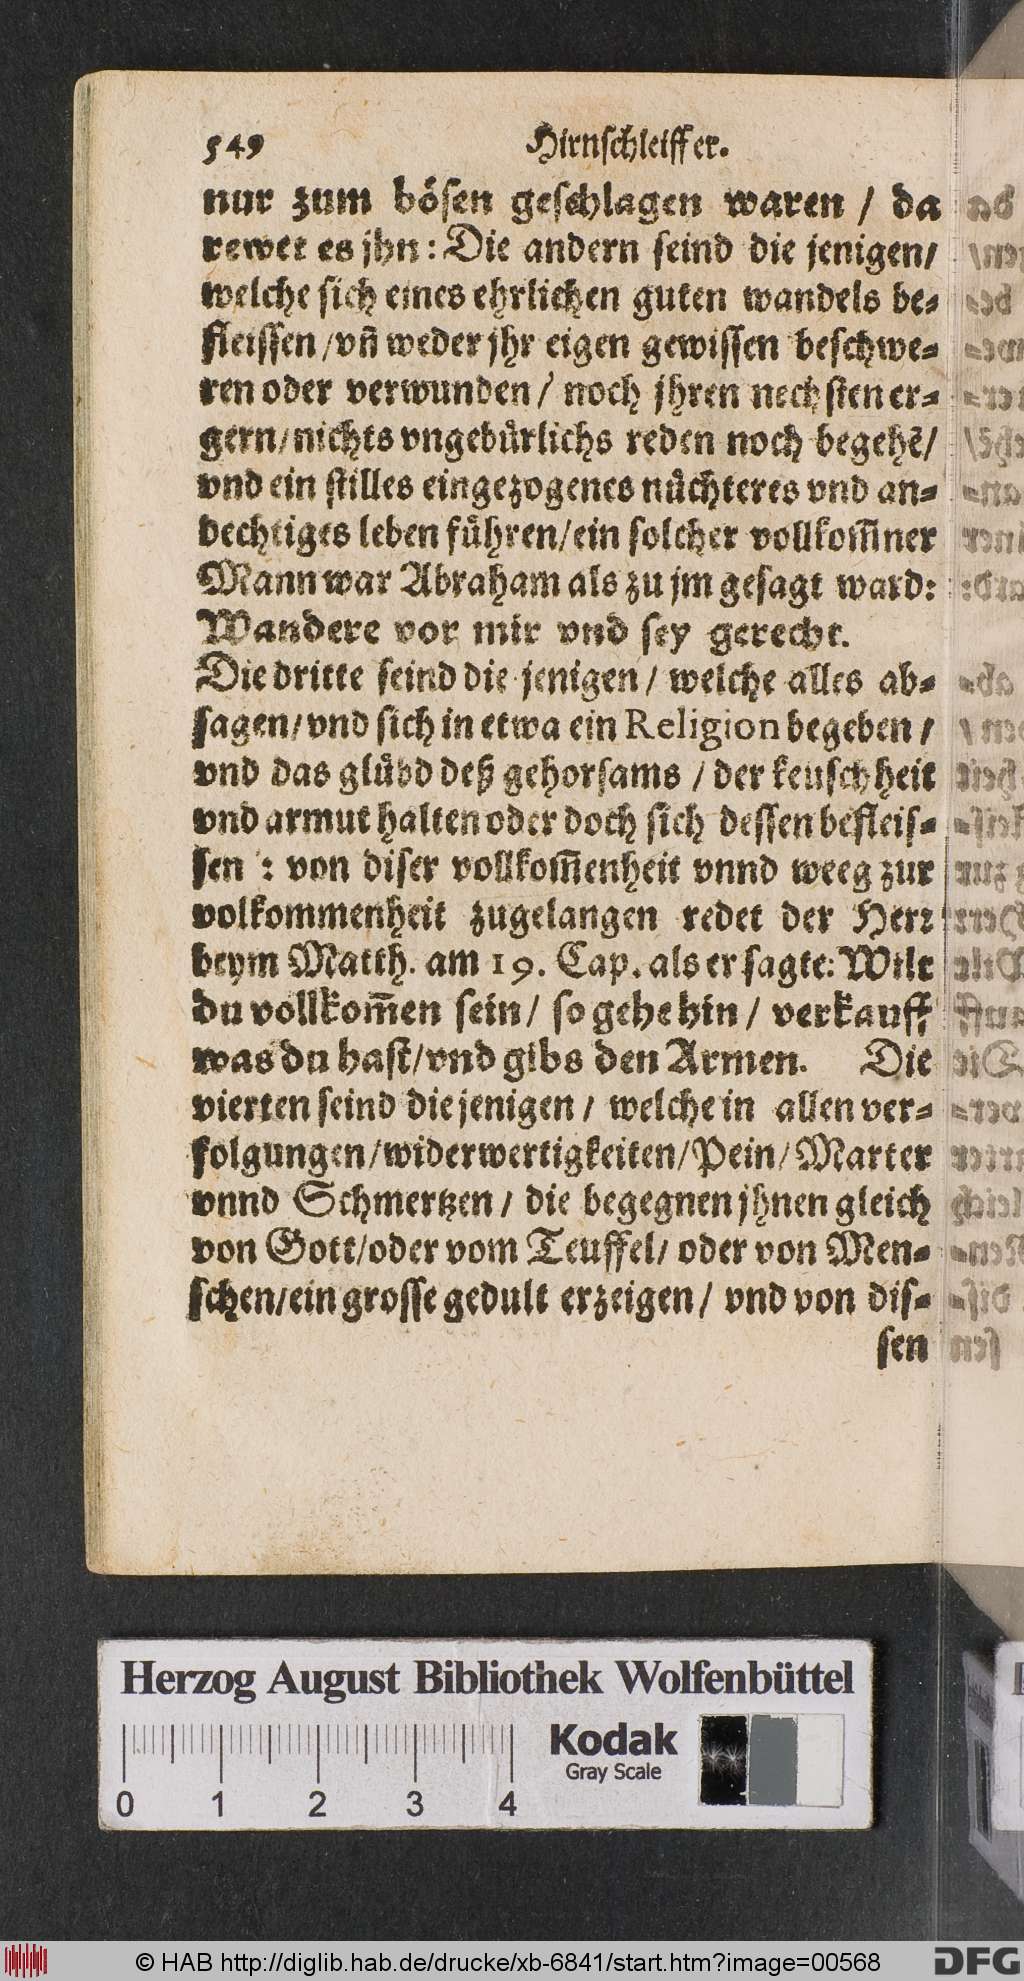 549 Hirnschleiffer.
nur zum bösen geschlagen waren / da
rewet es jhn: Die andern seind die jenigen/
welche sich eines ehrlichen guten wandels be-
fleissen /vñ weder jhr eigen gewissen beschwe-
ren oder verwunden / noch jhren nechsten er-
gern/nichts vngebůrlichs reden noch begehẽ/
vnd ein stilles eingezogenes nůchteres vnd an-
dechtiges leben fůhren/ein solcher vollkom̃ner
Mann war Abraham als zu jm gesagt ward:
Wandere vor mir vnd sey gerecht.
Die dritte seind die jenigen / welche alles ab-
sagen/vnd sich in etwa ein Religion begeben /
vnd das glůbd deß gehorsams / der keuschheit
vnd armut halten oder doch sich dessen befleis-
sen : von diser vollkom̃enheit vnnd weeg zur
volkommenheit zugelangen redet der Herr
beym Matth. am 19. Cap. als er sagte: Wilt
du vollkom̃en sein/ so gehe hin / verkauff
was du hast/vnd gibs den Armen. Die
vierten seind die jenigen / welche in allen ver-
folgungen/widerwertigkeiten/Pein/Marter
vnnd Schmertzen / die begegnen jhnen gleich
von Gott/oder vom Teuffel/ oder von Men-
schen/ein grosse gedult erzeigen / vnd von dis-
sen
Herzog August Bibliothek Wolfenbüttel
0 1 2 3 4
Kodak
Gray Scale
© HAB http://diglib.hab.de/drucke/xb-6841/start.htm?image=00568
DFG